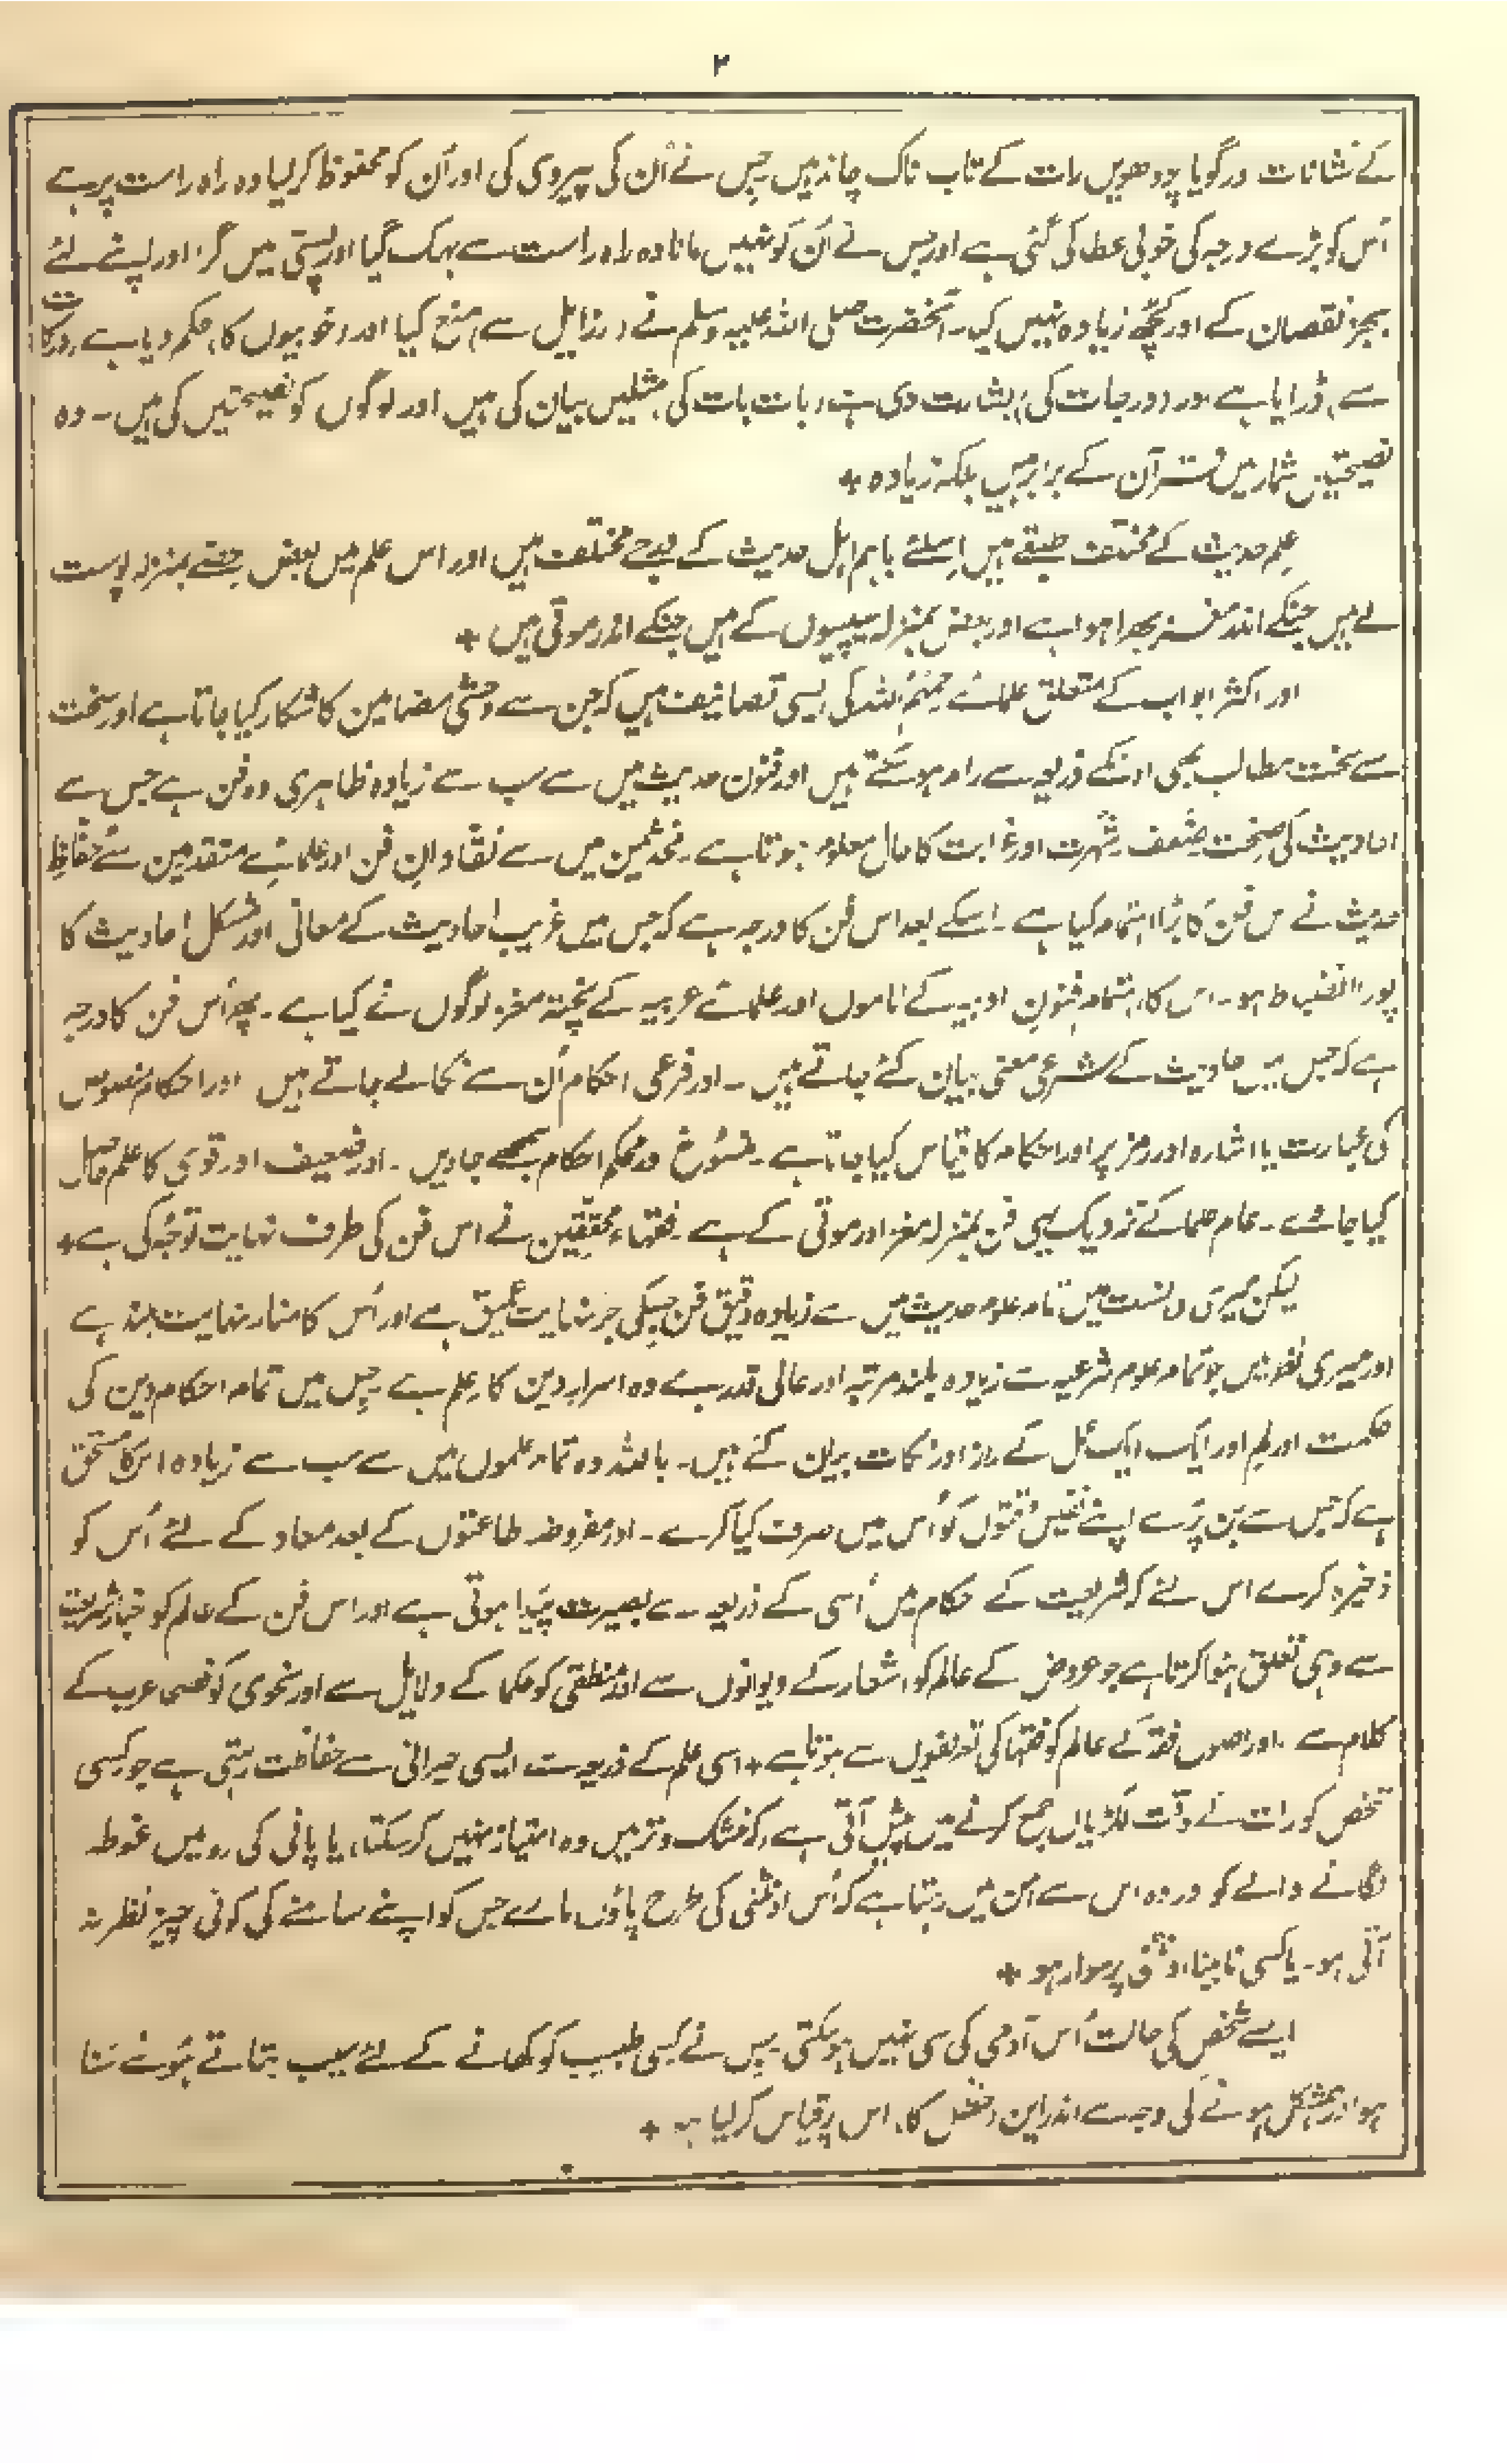 ۲
کے نشانات اور گویا چودھویں رات کے تاب ناک چاند ہیں جس نے اُن کی پیروی کی اور اُن کو محفوظ کر لیا وہ راہ راست پر ہے
اُس کو بڑے درجہ کی خوبی عطا کی گئی ہے اور جس نے اُن کو نہیں مانا وہ راہ راست سے بہک گیا اور پستی میں گرا اور اپنے لئے
بجز نقصان کے اور کچھ زیادہ نہیں کیا۔ آنحضرت صلی اللہ علیہ وسلم نے (رذایل سے) منع کیا اور (خوبیوں کا) حکم دیا ہے (درکات
سے) ڈرایا ہے اور (درجات کی) بشارت دی ہے (بات بات کی) مثلیں بیان کی ہیں اور لوگوں کو نصیحتیں کی ہیں۔ وہ
نصیحتیں شمار میں قرآن کے برابر ہیں بلکہ زیادہ +
علم حدیث کے مختلف طبقے ہیں اِسلئے باہم اہل حدیث کے درجے مختلف ہیں اور اس علم میں بعض حصے بمنزلہ پوست
کے ہیں جنکے اندر مغز بھرا ہوا ہے اور بعض بمنزلہ سیپیوں کے ہیں جنکے اندر موتی ہیں +
اور اکثر ابواب کے متعلق علمائے رحمہم اللہ کی ایسی تصانیف ہیں کہ جن سے وحشی مضامین کا شکار کیا جاتا ہے اور سخت
سے سخت مطالب بھی انکے ذریعہ سے رام ہو سکتے ہیں اور فنون حدیث میں سے سب سے زیادہ ظاہری وہ فن ہے جس سے
احادیث کی صحت ضعف شہرت اور غرابت کا حال معلوم ہوتا ہے۔ محدثین میں سے نقادانِ فن اور علمائے متقدمین سے حفاظِ
حدیث نے اس فن کا بڑا اہتمام کیا ہے۔ اسکے بعد اس فن کا درجہ ہے کہ جس میں غریب احادیث کے معانی اور مشکل احادیث کا
پورا انضباط ہو۔ اس کا اہتمام فنونِ ادبیہ کے اماموں اور علمائے عربیہ کے پختہ مغز لوگوں نے کیا ہے۔ پھر اُس فن کا درجہ
ہے کہ جس میں احادیث کے شرعی معنی بیان کئے جاتے ہیں۔ اور فرعی احکام اُن سے نکالے جاتے ہیں اور احکام منصوص
کی عبارت یا اشارہ اور رمز پر اور احکام کا قیاس کیا جاتا ہے۔ منسوخ و محکم احکام سمجھے جاویں۔ اور ضعیف اور قوی کا علم حاصل
کیا جائے۔ عام علما کے نزدیک یہی فن بمنزلہ مغز اور موتی کے ہے۔ فقہاء محققین نے اس فن کی طرف نہایت توجہ کی ہے +
لیکن میری دانست میں تمام علوم حدیث میں سے زیادہ دقیق فن جسکی جڑ نہایت عمیق ہے اور اُس کا منار نہایت بلند ہے
اور میری نظر میں جو تمام علوم شرعیہ سے زیادہ بلند مرتبہ اور عالی قدر ہے وہ اسرار دین کا علم ہے جس میں تمام احکام دین کی
حکمت اور لِم اور ایک ایک عمل کے راز اور نکات بیان کئے ہیں۔ باللہ وہ تمام علموں میں سے سب سے زیادہ اس کا مستحق
ہے کہ جس سے بن پڑے اپنے نفیس وقتوں کو اُس میں صرف کیا کرے۔ اور مفروضہ طاعتوں کے بعد معاد کے لئے اُس کو
ذخیرہ کرے اس لئے کہ شریعت کے احکام میں اُسی کے ذریعہ سے بصیرت پیدا ہوتی ہے اور اس فن کے عالم کو اخبار شریعت
سے وہی تعلق ہوا کرتا ہے جو عروض کے عالم کو اشعار کے دیوانوں سے اور منطقی کو حکما کے دلایل سے اور نحوی کو فصحا عرب کے
کلام سے۔ اور اصول فقہ کے عالم کو فقہا کی تفریعوں سے ہوتا ہے + اسی علم کے ذریعہ سے ایسی حیرانی سے حفاظت رہتی ہے جو کسی
شخص کو رات کے وقت لکڑیاں جمع کرنے میں پیش آتی ہے، کہ خشک و تر میں وہ امتیاز نہیں کر سکتا، یا پانی کی رو میں غوطہ
لگانے والے کو اور وہ اس سے امن میں رہتا ہے کہ اُس اونٹنی کی طرح پاؤں مارے جس کو اپنے سامنے کی کوئی چیز نظر نہ
آتی ہو۔ یا کسی نابینا اونٹنی پر سوار ہو +
ایسے شخص کی حالت اُس آدمی کی سی نہیں ہو سکتی جس نے کسی طبیب کو کھانے کے لئے سیب بتاتے ہوئے سنا
ہو اور ہمشکل ہونے کی وجہ سے اندراین (حنظل) کا، اس پر قیاس کر لیا ہو +